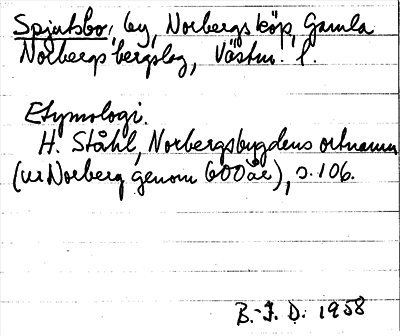 Spjutsbo, by, Norbergs köp, Gamla
Norbergs bergslag, Västm. l.
Etymologi.
H. Ståhl, Norbergsbygdens ortnamn
(ur Norberg genom 600 år), s. 106.
B.-I. D. 1958